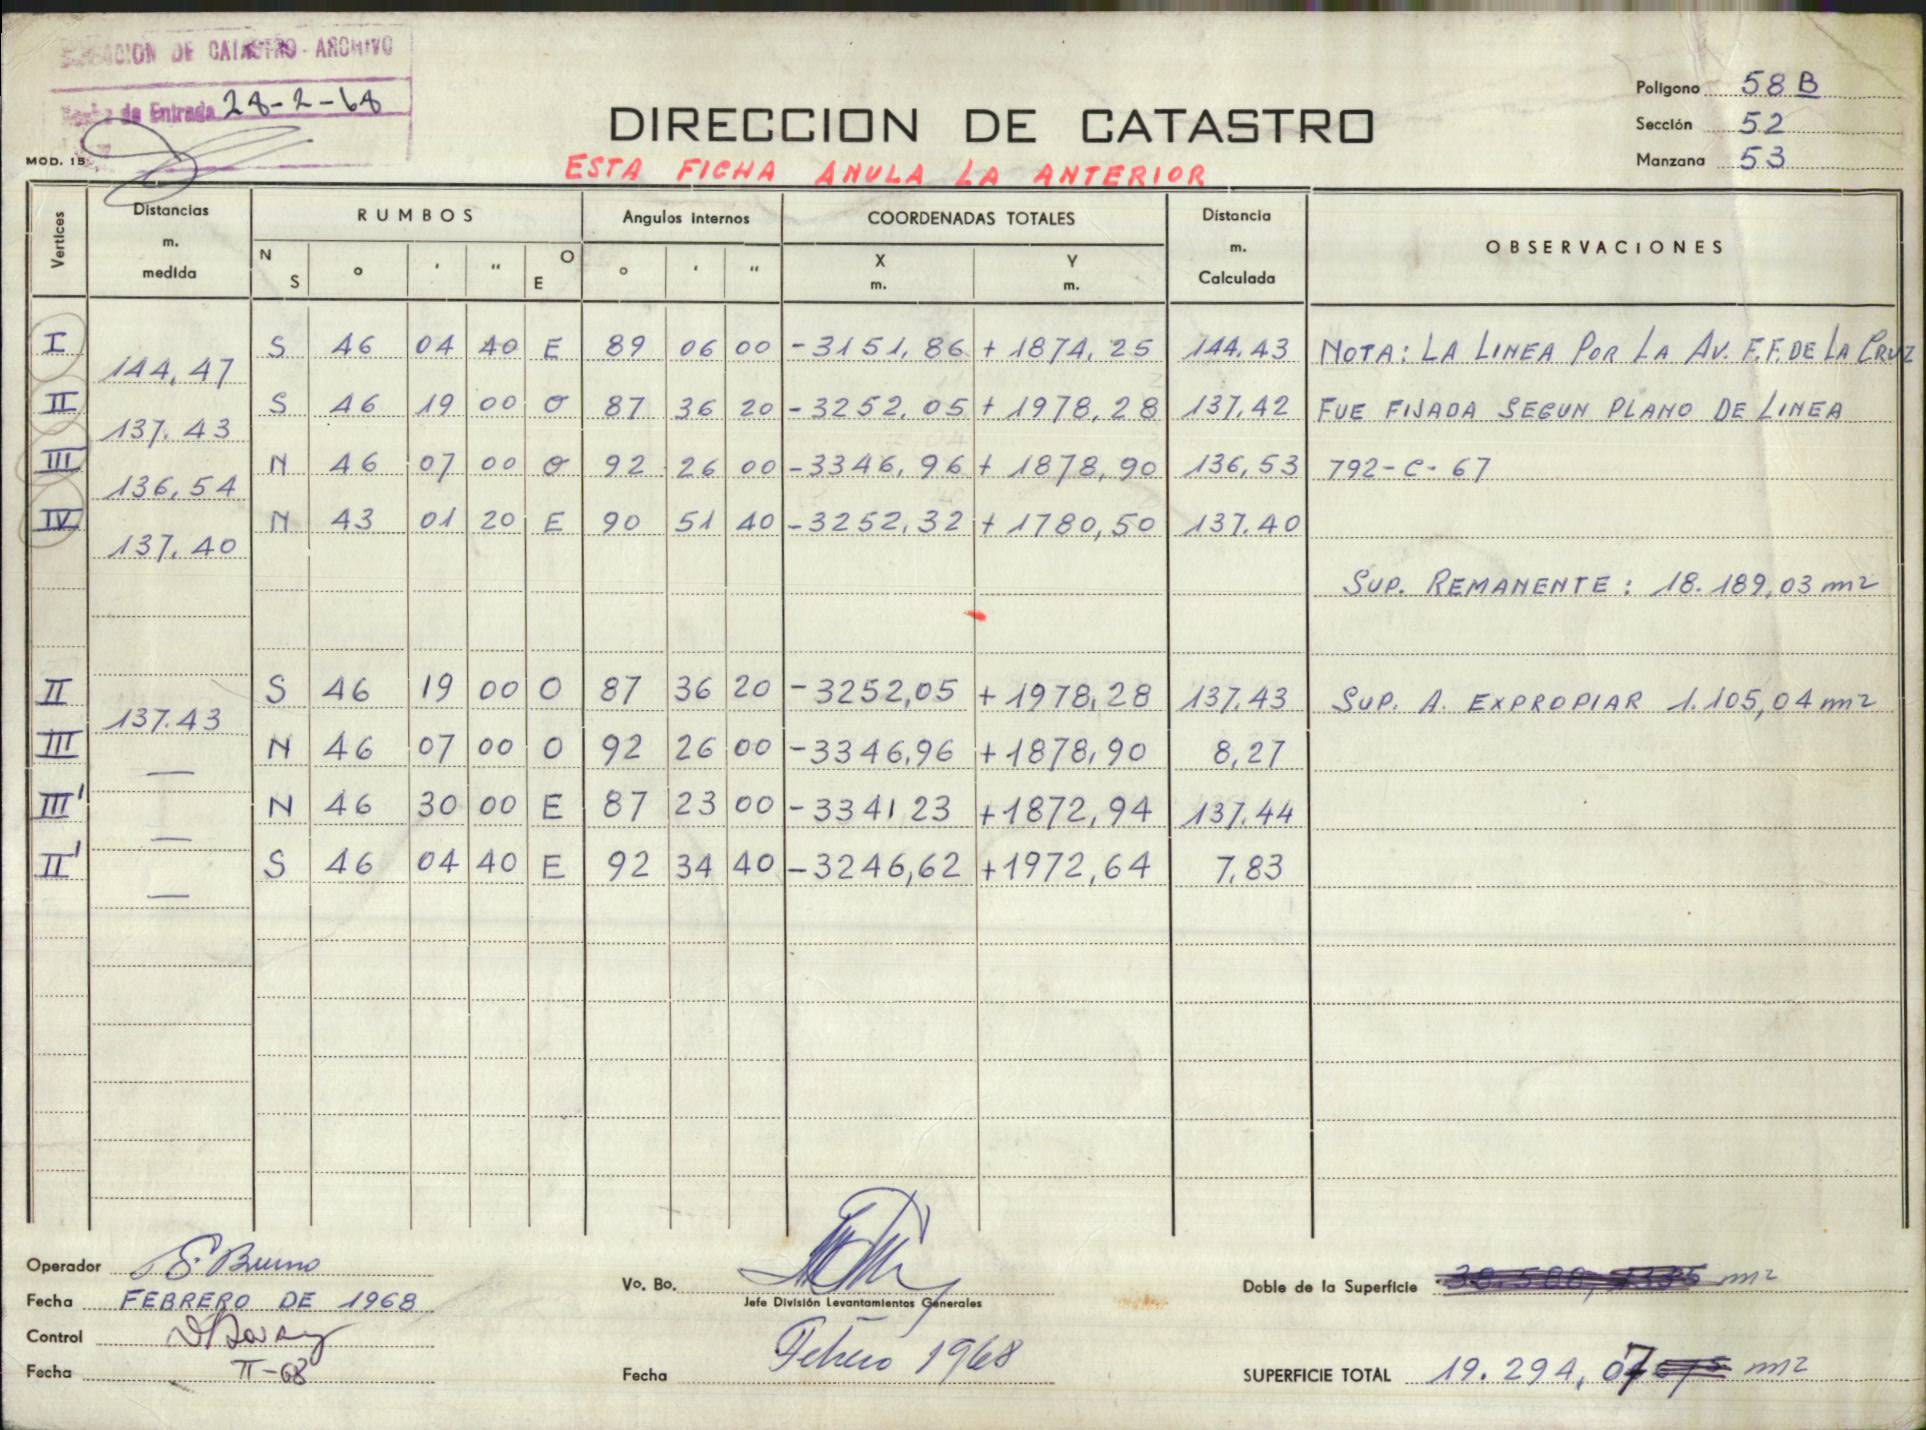 DE CATASTRO - ARCHIVO
de Entrada 28-2-68
MOD. 15
DIRECCION DE CATASTRO
ESTA FICHA ANULA LA ANTERIOR
Poligono 58 B
Sección 52
Manzana 53
Vertices Distancias m. medida RUMBOS Angulos internos COORDENADAS TOTALES Distancia m. Calculada OBSERVACIONES
N S o ' " O E o ' " X m. Y m.
I S 46 04 40 E 89 06 00 -3151,86 +1874,25 144,43 NOTA: LA LINEA POR LA AV. F.F. DE LA CRUZ
144,47
II S 46 19 00 O 87 36 20 -3252,05 +1978,28 137,42 FUE FIJADA SEGUN PLANO DE LINEA
137.43
III N 46 07 00 O 92 26 00 -3346,96 +1878,90 136,53 792-C-67
136,54
IV N 43 01 20 E 90 51 40 -3252,32 +1780,50 137.40
137.40
SUP. REMANENTE: 18.189,03 m2
II S 46 19 00 O 87 36 20 -3252,05 +1978,28 137.43 SUP. A. EXPROPIAR 1.105,04 m2
137.43
III N 46 07 00 O 92 26 00 -3346,96 +1878,90 8,27
—
III' N 46 30 00 E 87 23 00 -3341 23 +1872,94 137.44
—
II' S 46 04 40 E 92 34 40 -3246,62 +1972,64 7,83
—
Operador Bruno
Fecha FEBRERO DE 1968
Control
Fecha II-68
Vo. Bo.
Jefe División Levantamientos Generales
Fecha Febrero 1968
Doble de la Superficie m2
SUPERFICIE TOTAL 19.294,07 m2